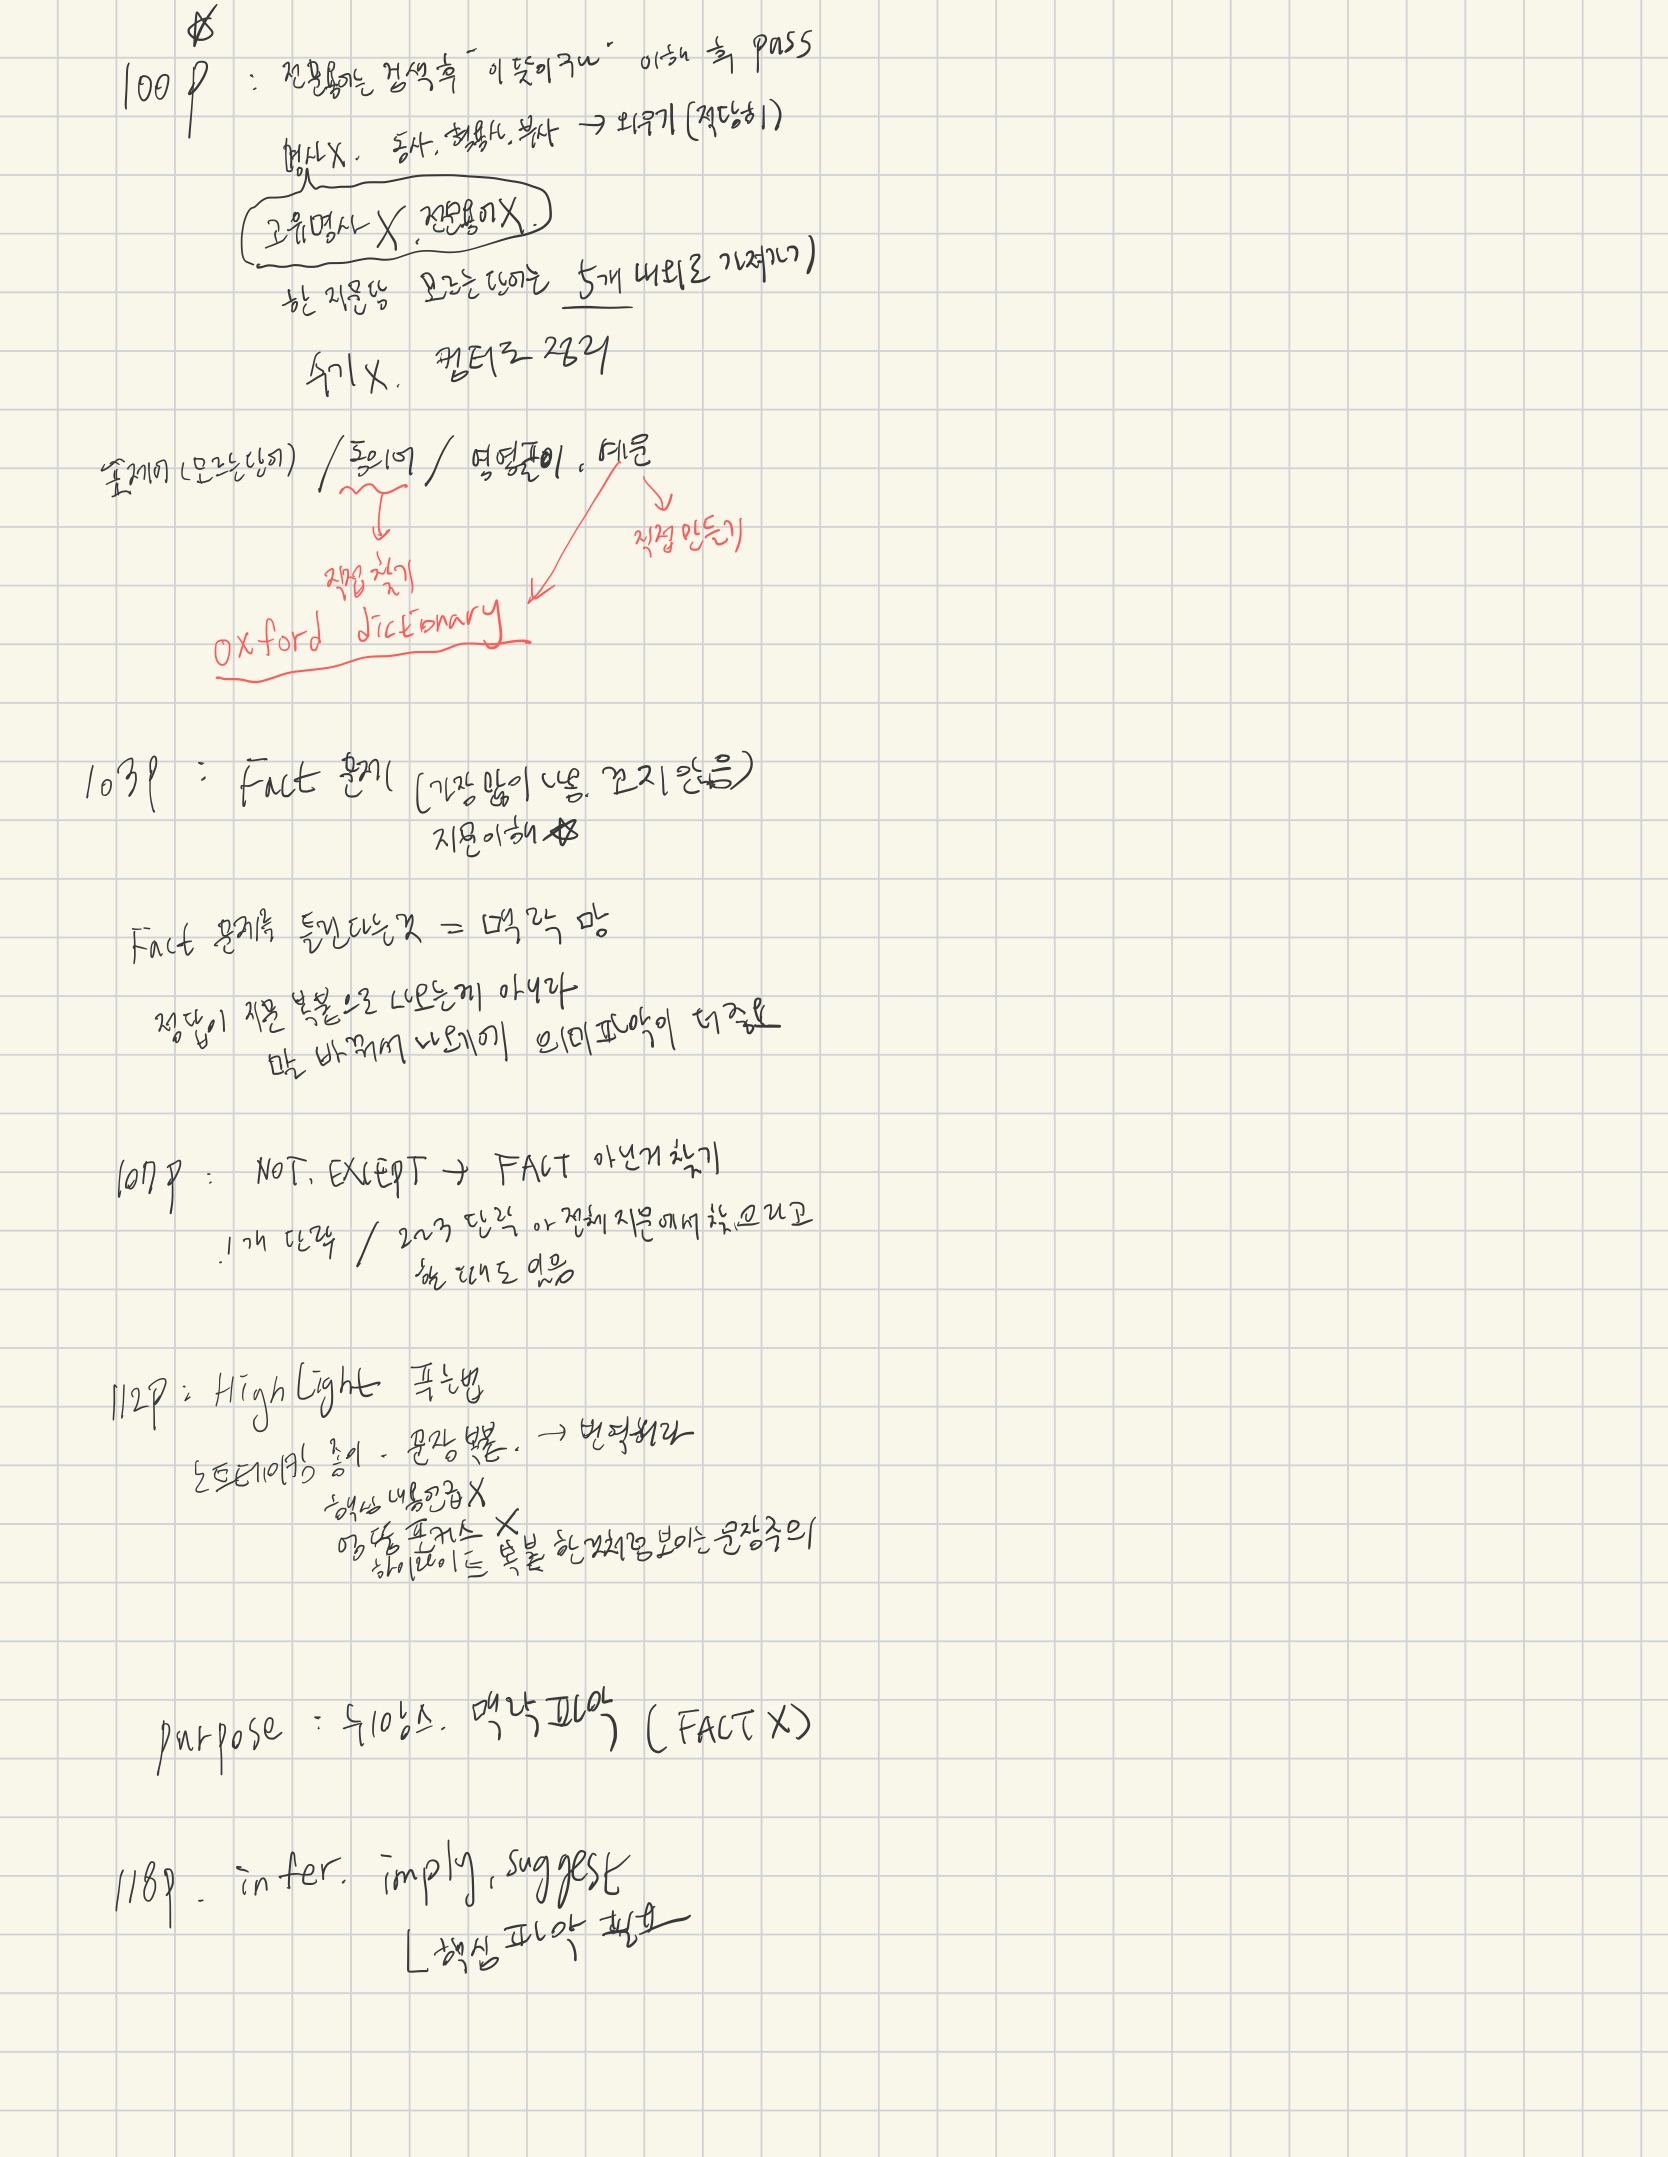 100p : 전문용어는 검색 후 "이 뜻이구나" 이해 후 pass
명사X. 동사. 형용사. 부사 → 외우기 (적당히)
고유명사 X. 전문용어X.
한 지문당 모르는 단어는 5개 내외로 가져가기)
수기X. 컴터로 정리
표제어 (모르는단어) / 동의어 / 영영풀이, 예문
직접 만들기
직접 찾기
oxford dictionary
103p : Fact 문제 (가장 많이 나옴. 꼬지 않음)
지문이해☆
Fact 문제를 틀린다는것 = 맥락 망
정답이 지문 복붙으로 나오는게 아니라
말 바꿔서 나오기에 의미파악이 더 중요
107p : NOT. EXCEPT → FACT 아닌거 찾기
1개 단락 / 2~3 단락 아 전체 지문에서 찾으라고
할 때도 있음
112p : HighLight 푸는법
노트테이킹 종이. 문장 복붙. → 번역해라
핵심 내용언급X
엉뚱 포커스 X
하이라이트 복붙 한것처럼 보이는 문장주의
purpose : 뉘앙스. 맥락파악 (FACT X)
118p. infer. imply, suggest
ㄴ핵심파악 필요